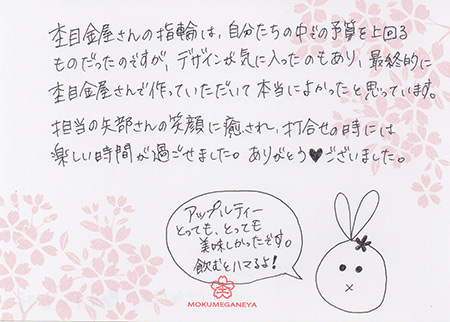 杢目金屋さんの指輪は、自分たちの中での予算を上回る
ものだったのですが、デザインが気に入ったのもあり、最終的に
杢目金屋さんで作っていただいて本当によかったと思っています。
担当の矢部さんの笑顔に癒され、打合せの時には
楽しい時間が過ごせました。ありがとう♥ございました。
アップルティー
とっても、とっても
美味しかったです。
飲むとハマるよ!
MOKUMEGANEYA